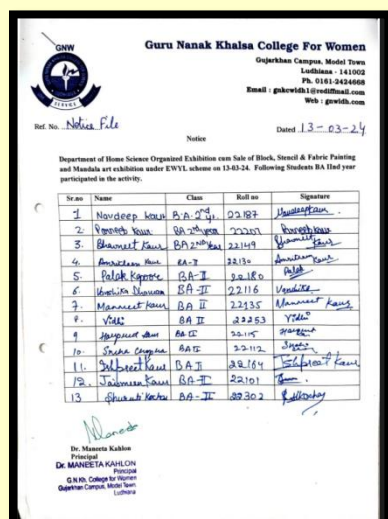 GNW
SERVICE
Guru Nanak Khalsa College For Women
Gujarkhan Campus, Model Town
Ludhiana - 141002
Ph. 0161-2424668
Email : gnkcwldh1@rediffmail.com
Web : gnwldh.com
Ref. No. Notice File
Dated 13-03-24
Notice
Department of Home Science Organized Exhibition cum Sale of Block, Stencil & Fabric Painting
and Mandala art exhibition under EWYL scheme on 13-03-24. Following Students BA IInd year
participated in the activity.
Sr.no Name Class Roll no Signature
1 Navdeep Kaur B.A. 2nd yr. 22187 Navdeep Kaur
2 Kaur BA 2nd year
3. Bhavneet Kaur BA 2nd year 22149 Bhavneet Kaur
4. Kaur BA-II 22130 Kaur
5. Palak Kapoor BA-II 22180 Palak
6. BA-II 22116
7. Manneet Kaur BA II 22135 Manneet Kaur
8. Vidhi BA II 22253 Vidhi
9 BA II 22115
10. Sneha Chopra BA II 22112 Sneha
11. Ishpreet Kaur BA II 22184 Ishpreet Kaur
12. Jasmeen Kaur BA-II 22101
13 BA-II 22302
Maneeta
Dr. Maneeta Kahlon
Principal
Dr. MANEETA KAHLON
Principal
G.N.Kh. College for Women
Gujarkhan Campus, Model Town
Ludhiana